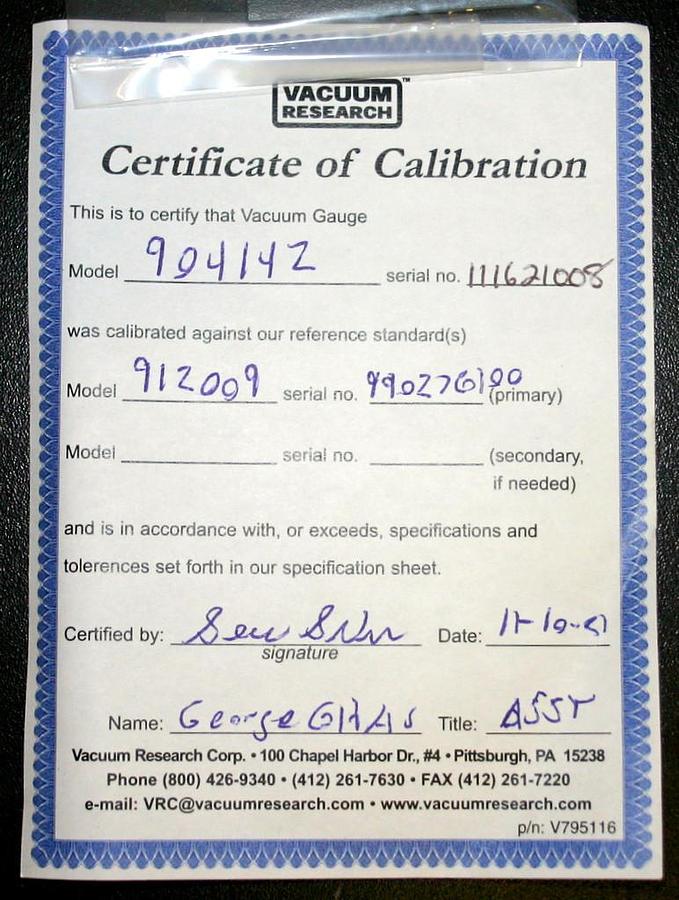 VACUUM™
RESEARCH
Certificate of Calibration
This is to certify that Vacuum Gauge
Model 904142 serial no. 111621008
was calibrated against our reference standard(s)
Model 912009 serial no. 990276100 (primary)
Model serial no. (secondary,
if needed)
and is in accordance with, or exceeds, specifications and
tolerences set forth in our specification sheet.
Certified by: Date:
signature
Name: George Title: ASST
Vacuum Research Corp. • 100 Chapel Harbor Dr., #4 • Pittsburgh, PA 15238
Phone (800) 426-9340 • (412) 261-7630 • FAX (412) 261-7220
e-mail: VRC@vacuumresearch.com • www.vacuumresearch.com
p/n: V795116